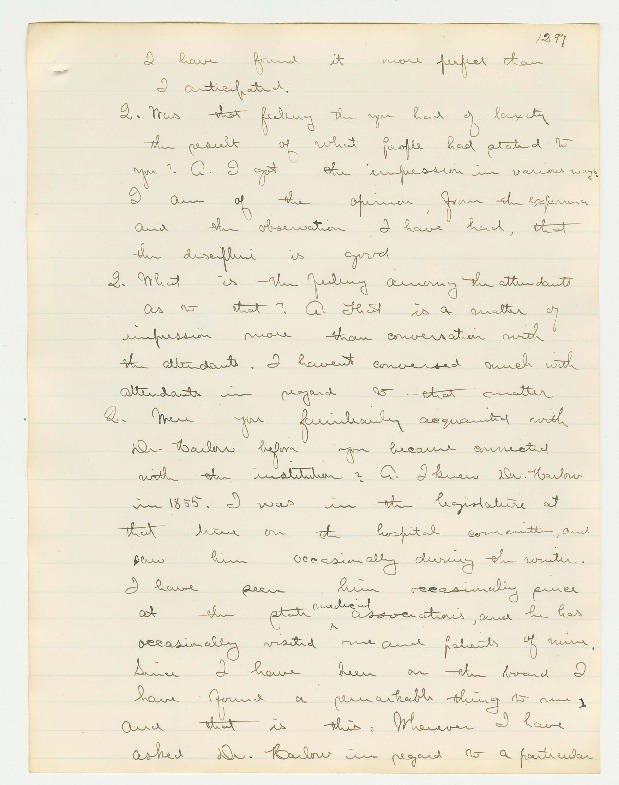 1297
I have found it more perfect than
I anticipated.
Q. Was that feeling the you had of laxity
the result of what people had stated to
you? A. I got the impression in various ways.
I am of the opinion, from the experience
and the observation I have had, that
the discipline is good
Q. What is the feeling among the attendants
as to that? A. That is a matter of
impression more than conversation with
the attendants. I havent conversed much with
attendants in regard to that matter
Q. Were you familiarly acquainted with
Dr. Harlow before you became connected
with the institution? A. I knew Dr. Harlow
in 1855. I was in the legislature at
that time on the hospital committee, and
saw him occasionally during the winter.
I have seen him occasionally since
at the state medical associations, and he has
occasionally visited me and patients of mine.
Since I have been on the board I
have found a remarkable thing to me,
and that is this: Whenever I have
asked Dr. Harlow in regard to a particular